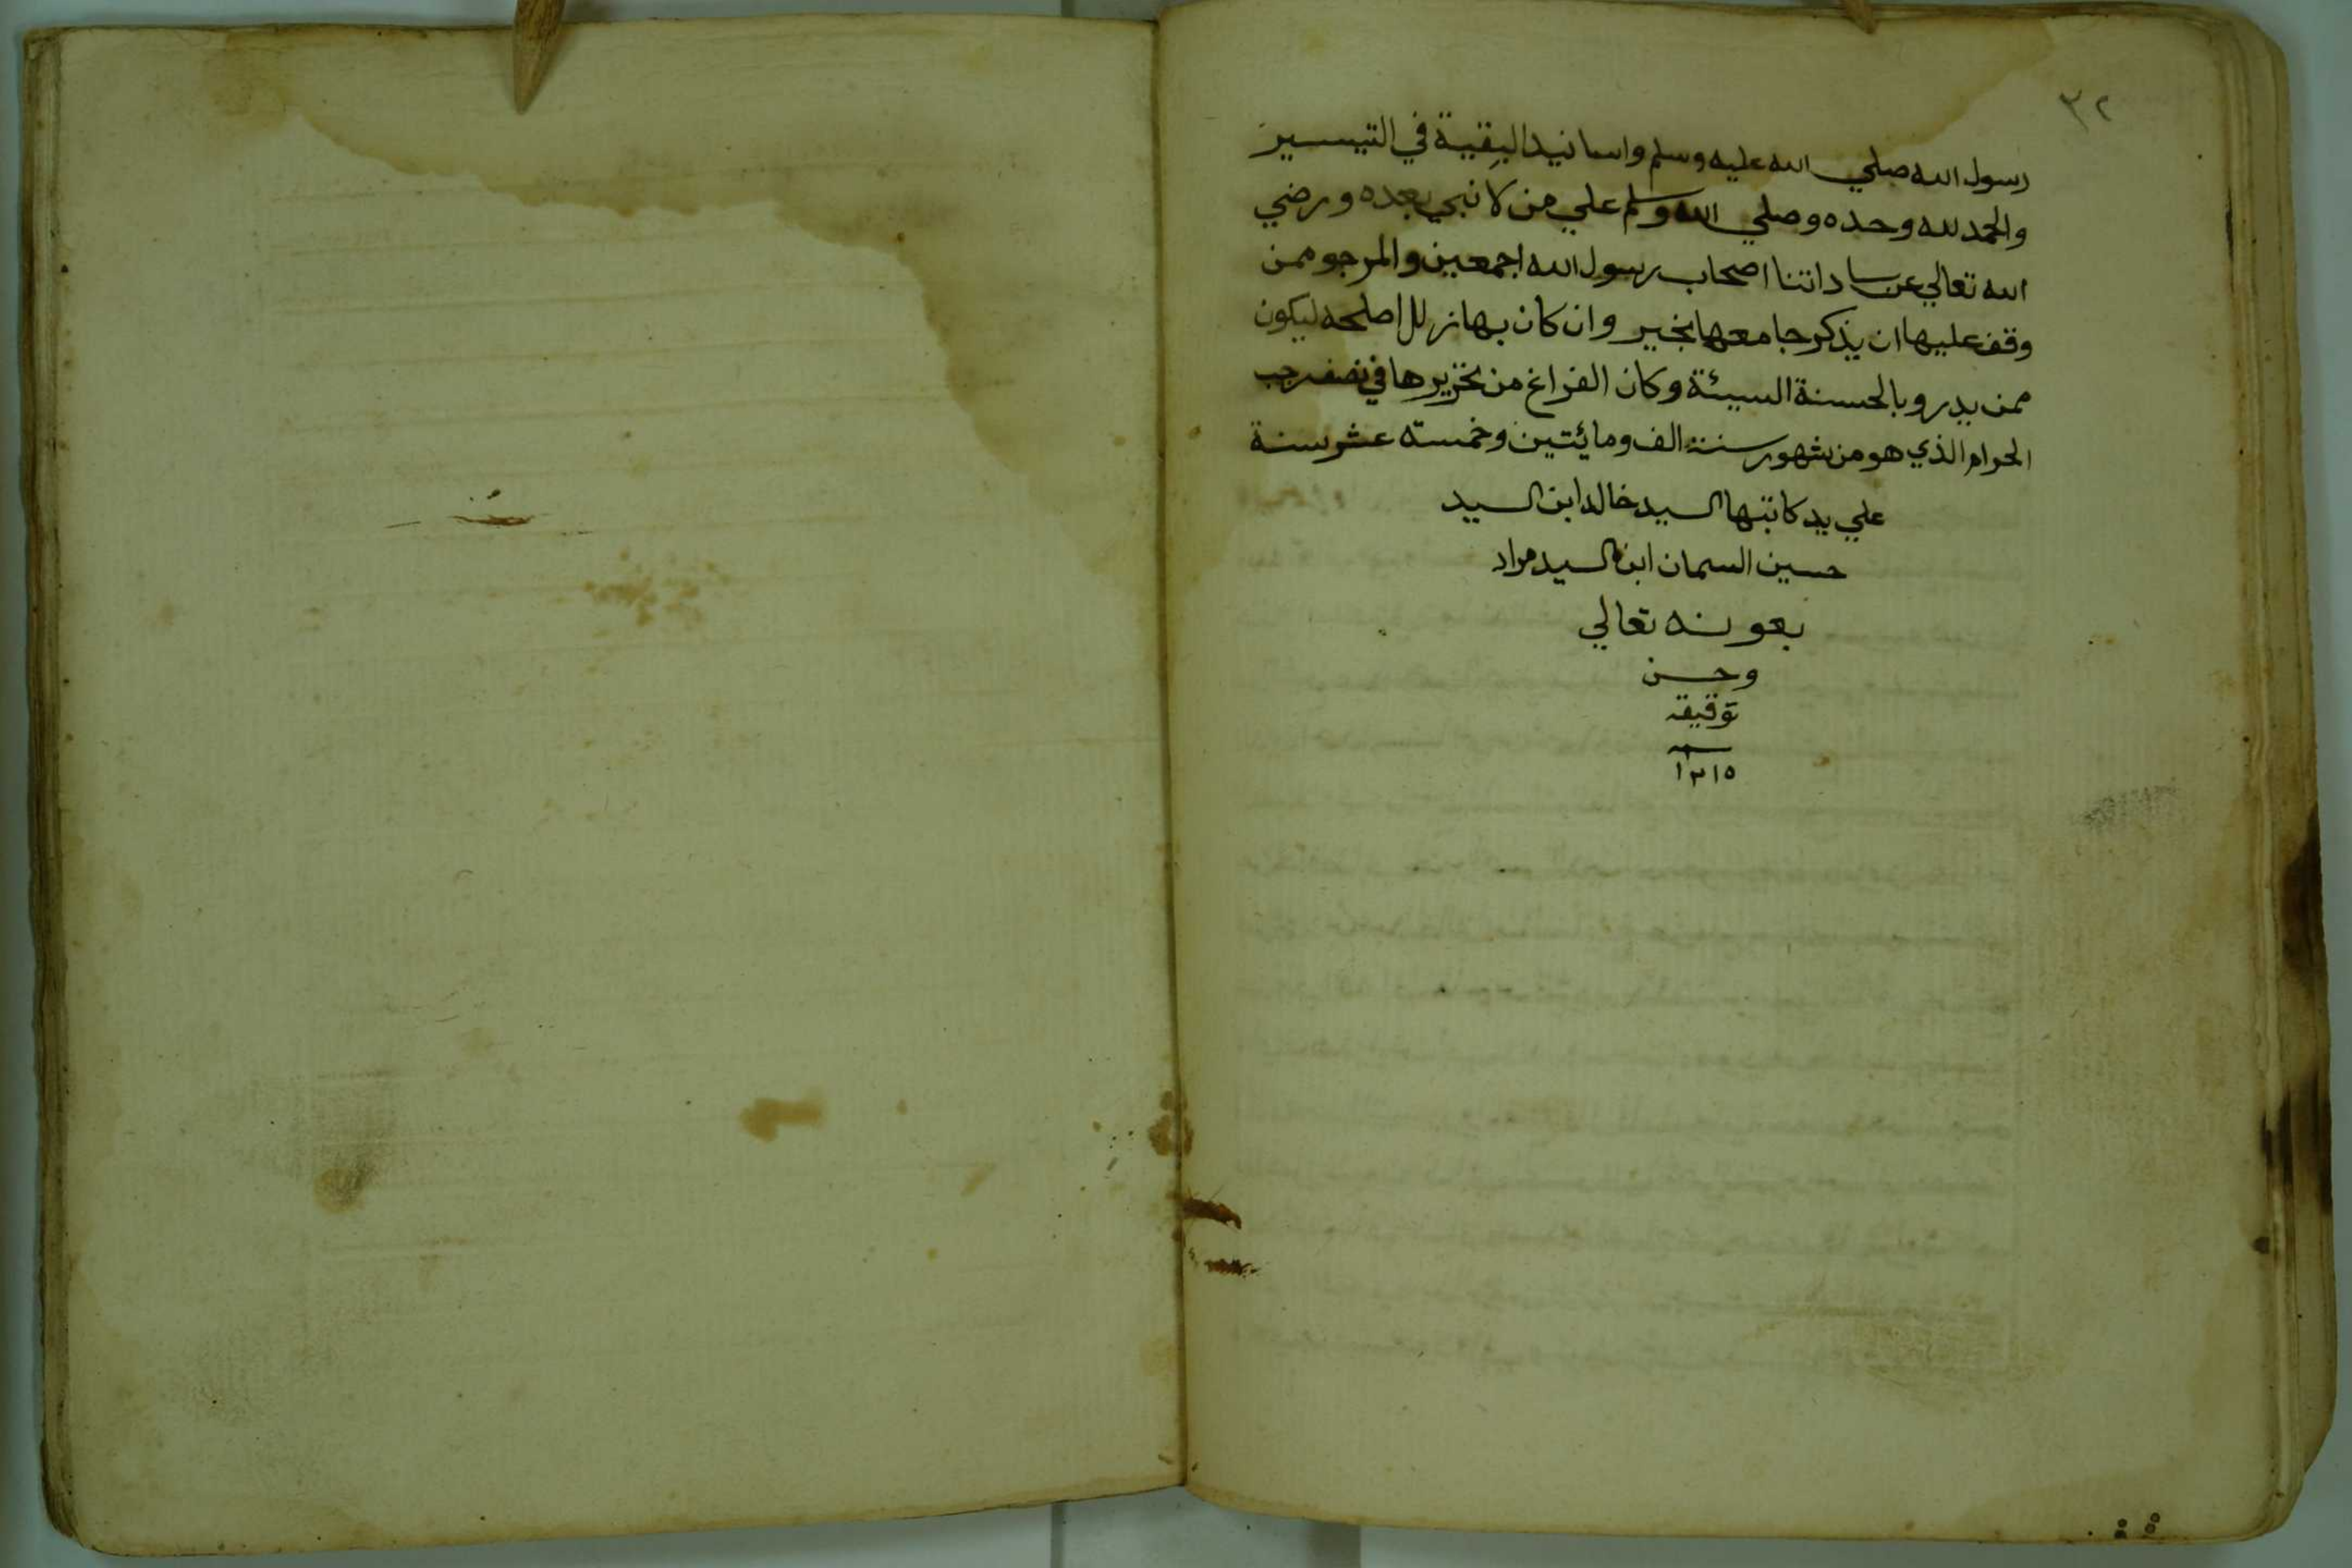 ٣٢
رسول الله صلي الله عليه وسلم واسانيد البقية في التيسير
والحمد لله وحده وصلي الله وسلم علي من لا نبي بعده ورضي
الله تعالي عن ساداتنا اصحاب رسول الله اجمعين والمرجو ممن
وقف عليها ان يذكر جامعها بخير وان كان بها زلل اصلحه ليكون
ممن يدرو بالحسنة السيئة وكان الفراغ من تحريرها في نصف رجب
الحرام الذي هو من شهور سنة الف ومائتين وخمسته عشر سنة
علي يد كاتبها السيد خالد ابن السيد
حسين السمان ابن السيد مراد
بعونه تعالي
وحسن
توفيقه
سنه
١٢١٥